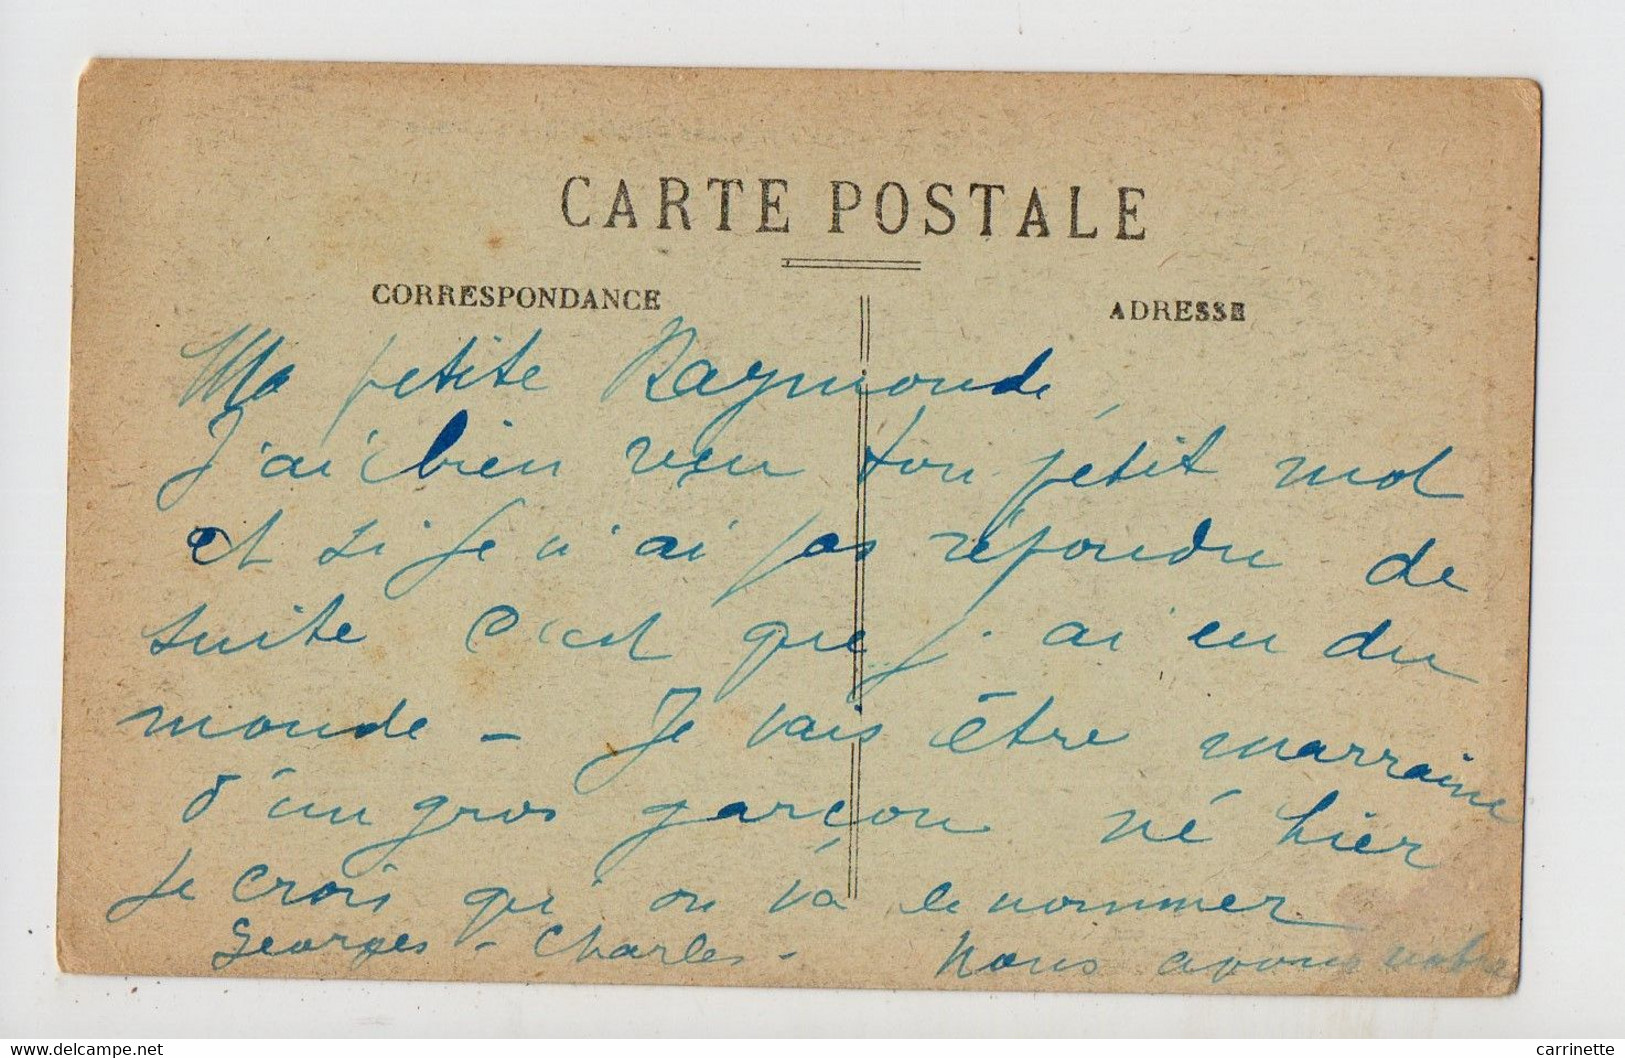 CARTE POSTALE
CORRESPONDANCE
ADRESSE
Ma petite Raymonde,
J'ai bien reçu ton petit mot
et si je n'ai pas répondu de
suite c'est que j'ai eu du
monde - Je vais être marraine
d'un gros garçon né hier
Je crois qui on va le nommer
Georges - Charles - Nous avons notre
delcampe.net
carrinette